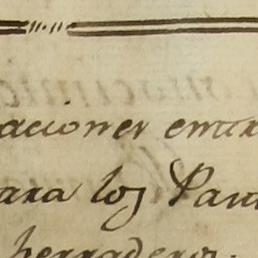 aciones entr
ara los Pan
herraderos.